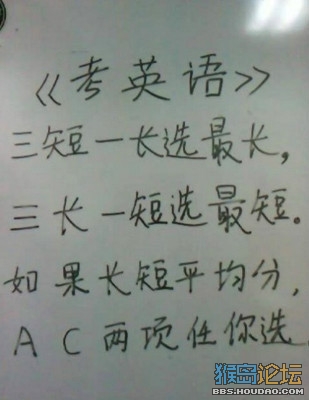 《考英语》
三短一长选最长,
三长一短选最短。
如果长短平均分,
A C 两项任你选
猴岛论坛
BBS.HOUDAO.COM